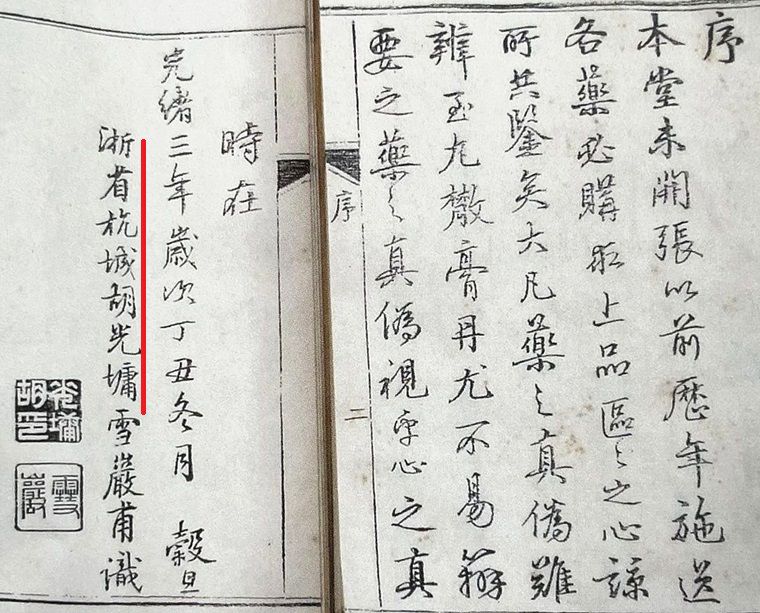 序
本堂未開張以前歷年施送
各藥必購取上品區〻之心諒
所共鑒矣大凡藥之真偽難
辨至丸散膏丹尤不易辨
要之藥之真偽視乎心之真
序
二
時在
光緒三年歲次丁丑冬月 穀旦
浙省杭城胡光墉雪巖甫識
光墉胡印
雪巖